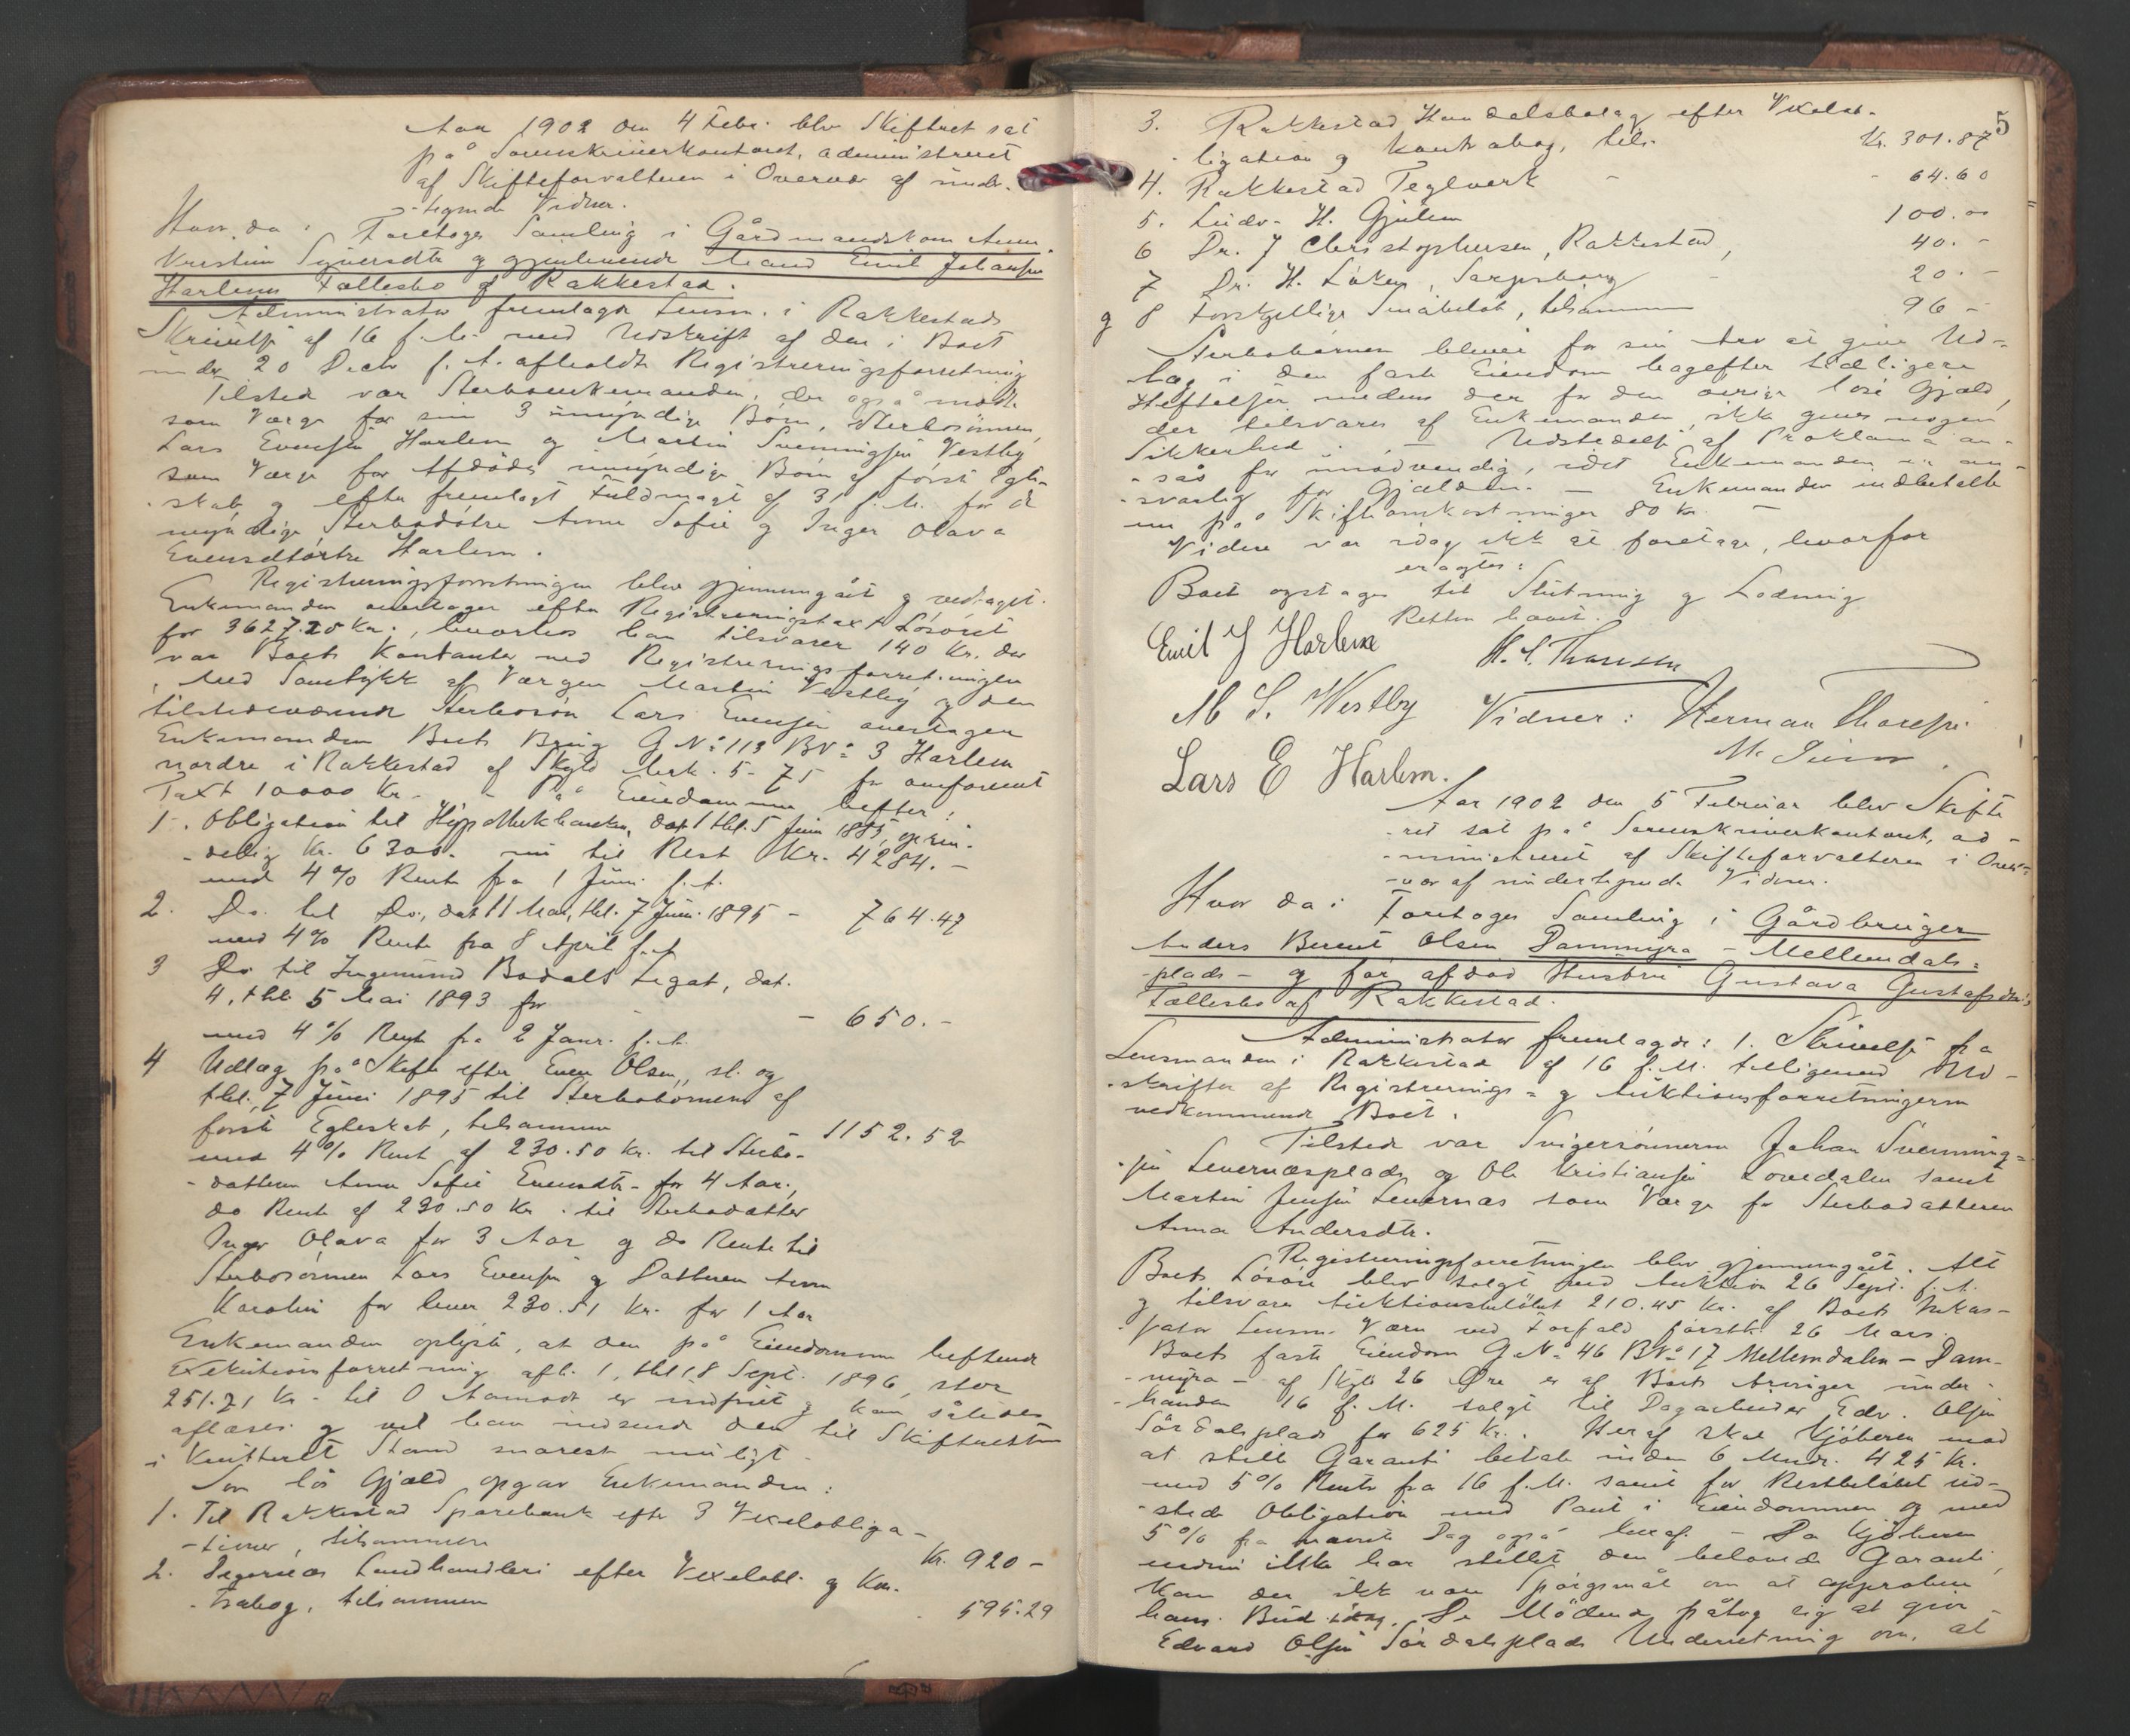 Aar 1902 den 4 Febr. blev Skifteret sat
på Sorenskriverkontoret, administreret
af Skifteforvalteren i Overvær af under-
-tegnede Vidner.
Hvor da: Foretoges Samling i Gårdmandskone Anne
Kristine Syversdtr og gjenlevende Mand Emil Johansen
Harlems Fællesbo af Rakkestad.
Administrator fremlagde Lensm. i Rakkestads
Skrivelse af 16 f. M. med Udskrift af den i Boet
under 20 Decbr f. A. afholdte Registreringsforretning
Tilstede var Sterboenkemanden, der også mødte
som Værge for sine 3 umyndige Børn, Sterbosønnen
Lars Evensen Harlem og Martin Svenningsen Vestby
som Værge for Afdødes umyndige Børn af først Egte-
-skab og efter fremlagt Fuldmagt af 31 f. M. for de
myndige Sterbodøtre Anne Sofie og Inger Olava
Evensdtøtre Harlem.
Registreringsforretningen blev gjennemgået og vedtaget.
Enkemanden overtager efter Registreringstaxt Løsøret
for 3627.25 Kr., hvorhos han tilsvarer 140 Kr. der
var Boets Kontanter ved Registreringsforretningen
Med Samtykke af Værgen Martin Vestby og den
tilstedeværende Sterbosøn Lars Evensen overtager
Enkemanden Boets Brug G.No 113 BNo 3 Harlem
nordre i Rakkestad af Skyld Mrk. 5-75 for omforenet
Taxt 10000 Kr. - På Eiendommen hefter:
1. Obligation til Hypothekbanken, dat 1 thl. 5 Juni 1885, oprin-
-delig Kr. 6300. nu til Rest Kr. 4284.-
med 4% Rente fra 1 Juni f. A.
2. Do. til Do., dat 11 Mai, thl. 7 Juni 1895 - 764.47
med 4% Rente fra 8 April f. A
3 Do til Ingemund Bodals Legat, dat.
4, thl. 5 Mai 1893 for - 650.-
med 4% Rente fra 2 Janr. f. A.
4 Udlæg på Skifte efter Even Olsen, sl. og
thl. 7 Juni 1895 til Sterbobørnene af
første Egteskab, tilsammen 1152.52
med 4% Rente af 230.50 Kr. til Sterbo-
-datteren Anne Sofie Evensdtr- for 4 Aar,
do Rente af 230.50 Kr. til Sterbodatter
Inger Olava for 3 Aar og do Rente til
Sterbosønnen Lars Evensen og Datteren Anne
Karoline for hver 230.51 Kr. for 1 Aar
Enkemanden oplyste, at den på Eiendommen heftende
Exekutionsforretning afh. 1, thl 18 Sept. 1896, stor
251.71 Kr. til O Aamodt er indfriet og kan således
aflæses og vil han indsende den til Skifteretten
i kvitteret Stand snarest muligt.
Som løs Gjæld opgav Enkemanden:
1. Til Rakkestad Sparebank efter 3 Vexelobliga-
-tioner, tilsammen Kr. 920 -
2. Degernæs Landhandleri efter Vexelobl. og Kon-
-trabog, tilsammen 595.29
5
3. Rakkestad Handelsbolag efter Vexelob-
-ligation og Kontrabog, tils. Kr. 301.87
4. Rakkestad Teglverk - - 64.60
5. Ludv. H. Gjulem 100.00
6 Dr. J Christophersen, Rakkestad, 40.-
7 Dr. H. Løken, Sarpsborg - 20.-
og 8 Forskjellige Småbeløb, tilsammen 96 -
Sterbobørnene blive for sin Arv at give Ud-
læg i den faste Eiendom bagefter tidligere
Heftelser medens der for den øvrige løse Gjæld,
der tilsvares af Enkemanden, ikke gives nogen
Sikkerhed. - Udstedelse af Proklama an-
-såes for unødvendig, idet Enkemanden er an-
-svarlig for Gjælden. - Enkemanden indbetalte
nu på Skifteomkostninger 80 Kr. -
Videre var idag ikke at foretage, hvorfor
eragtes:
Boet optages til Slutning og Lodning
Retten hævet.
Emil J Harlem
H. S. Thoresen
M S. Westby
Vidner: Herman Thoresen
Lars E Harlem.
Aar 1902 den 5 Februar blev Skifte-
-ret sat på Sorenskriverkontoret, ad-
-ministreret af Skifteforvalteren i Over-
-vær af undertegnede Vidner.
Hvor da: Foretoges Samling i Gårdbruger
Anders Bernt Olsen Dammyra - Mellemdals-
-plads - og før afdød Hustru Gustava Gustafsdtrs
Fællesbo af Rakkestad.
Administrator fremlagde: 1. Skrivelse fra
Lensmanden i Rakkestad af 16 f. M. tilligemed Ud-
-skrifter af Registrerings- og Auktionsforretningerne
vedkommende Boet.
Tilstede var Svigersønnerne Johan Svenning-
-sen Levernæsplads og Ole Kristiansen Lovedalen samt
Martin Jensen Levernæs som Værge for Sterbodatteren
Anna Andersdtr.
Registreringsforretningen blev gjennemgået. Alt
Boets Løsøre blev solgt ved Auktion 26 Sept. f. A.
og tilsvares Auktionsbeløbet 210.45 Kr. af Boets Inkas-
-sator Lensm. Værn ved Forfald førstk. 26 Mars.
Boets faste Eiendom G.No 46 BNo 17 Mellemdalen - Dam-
-myra - af Skyld 26 Øre er af Boets Arvinger under-
-hånden 16 f. M. solgt til Dagarbeider Edv. Olsen
Sørdalsplads for 625 Kr.. Heraf skal Kjøberen mod
at stille Garanti betale inden 6 Mndr. 425 Kr.
med 5% Rente fra 16 f. M. samt for Restbeløbet ud-
-stede Obligation med Pant i Eiendommen og med
5% fra nævnte Dag også heraf. - Da Kjøberen
endnu ikke har stillet den belovede Garanti,
kan der ikke være Spørgsmål om at approbere
hans Bud idag. De Mødende påtog sig at give
Edvard Olsen Sørdalsplads Underretning om, at